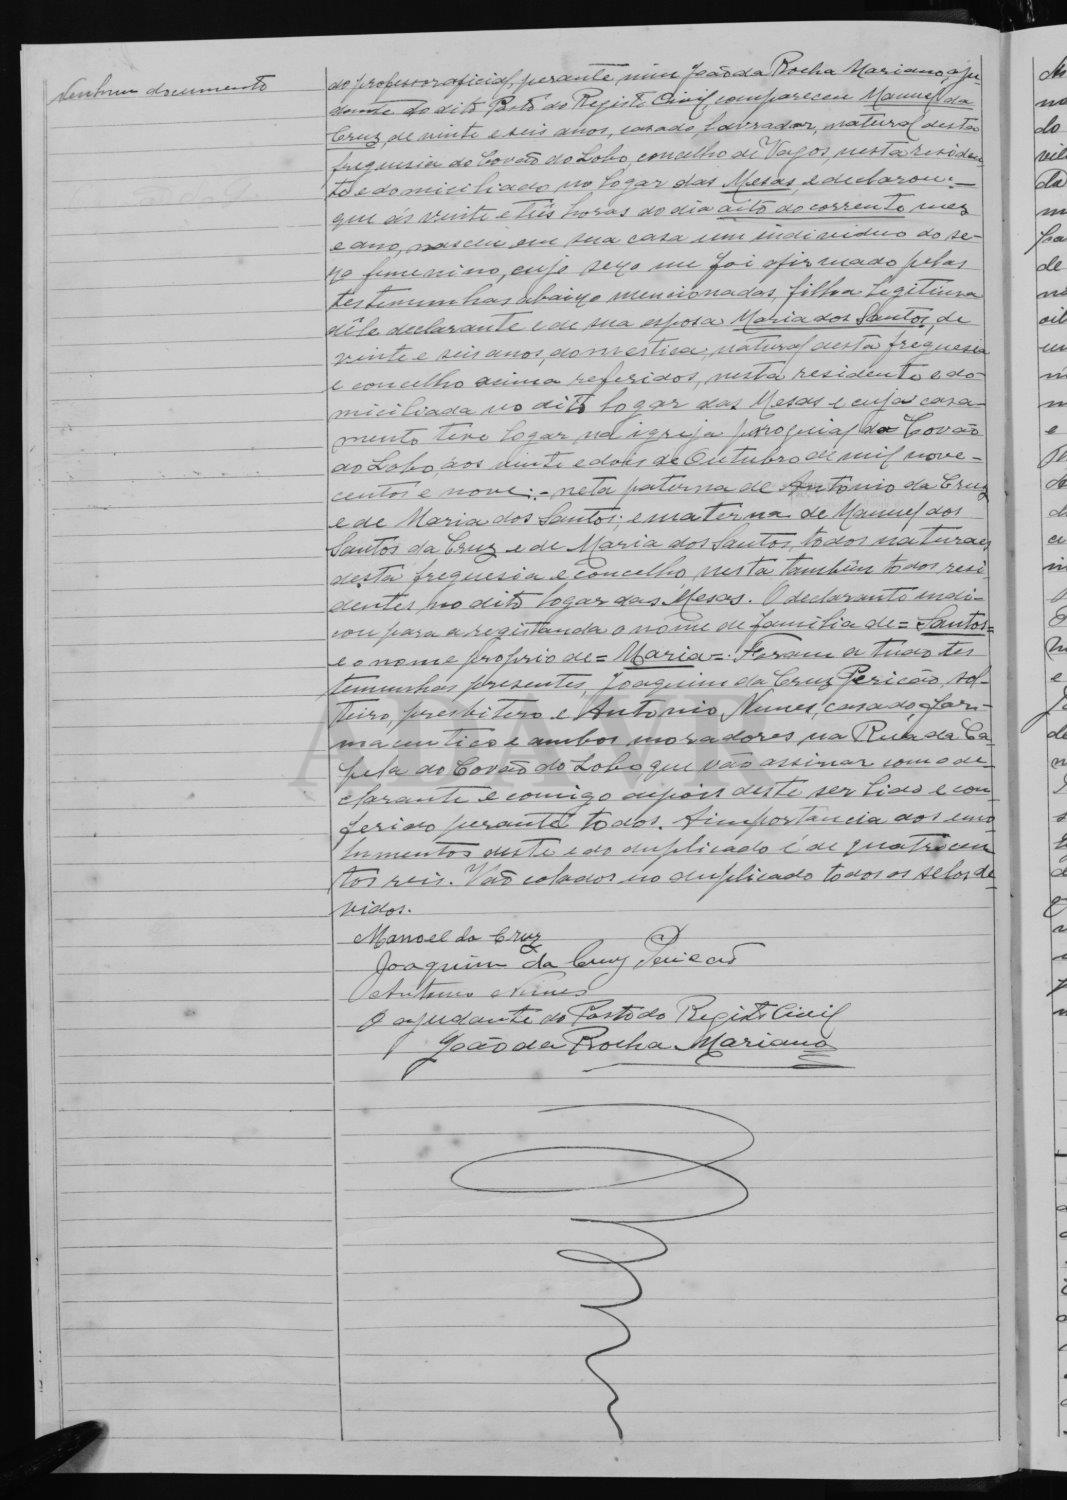 Nenhum documento
do professor oficial, perante mim João da Rocha Mariano, aju-
dante do dito Posto do Registo Civil, compareceu Manuel da
Cruz, de vinte e seis anos, casado, lavrador, natural desta
freguesia do Covão do Lobo, concelho de Vagos, nesta residen-
te e domiciliado no logar das Mesas e declarou:—
que ás vinte e três horas do dia oito do corrente mez
e ano, nasceu em sua casa um individuo do se-
xo femenino, cujo sexo me foi afirmado pelas
testemunhas abaixo mencionadas, filha legitima
dêle declarante e de sua esposa Maria dos Santos, de
vinte e seis anos, domestica, natural desta freguesia
e concelho acima referidos, nesta residente e do-
miciliada no dito logar das Mesas e cujo casa-
mento teve logar na igreja paroquial do Covão
do Lobo, aos vinte e dois de Outubro de mil nove-
centos e nove;- neta paterna de Antonio da Cruz
e de Maria dos Santos; e materna de Manuel dos
Santos da Cruz e de Maria dos Santos, todos naturaes
desta freguesia e concelho, nesta tambem todos resi-
dentes no dito logar das Mesas. O declarante indi-
cou para a registanda o nome de familia de = Santos =
e o nome proprio de = Maria =. Foram a tudo tes
temunhas presentes, Joaquim da Cruz Pericão, sol-
teiro, presbitero e Antonio Nunes, casado, far-
maceutico e ambos moradores na Rua da Ca-
pela do Covão do Lobo que vão assinar com o de-
clarante e comigo depois deste ser lido e con-
ferido perante todos. A importancia dos emo-
lumentos deste e do duplicado é de quatrocen
tos reis. Vão colados no duplicado todos os selos de-
vidos.
Manoel da Cruz
Joaquim da Cruz Pericão
Antonio Nunes
O ajudante do Posto do Registo Civil
João da Rocha Mariano
ADAVR